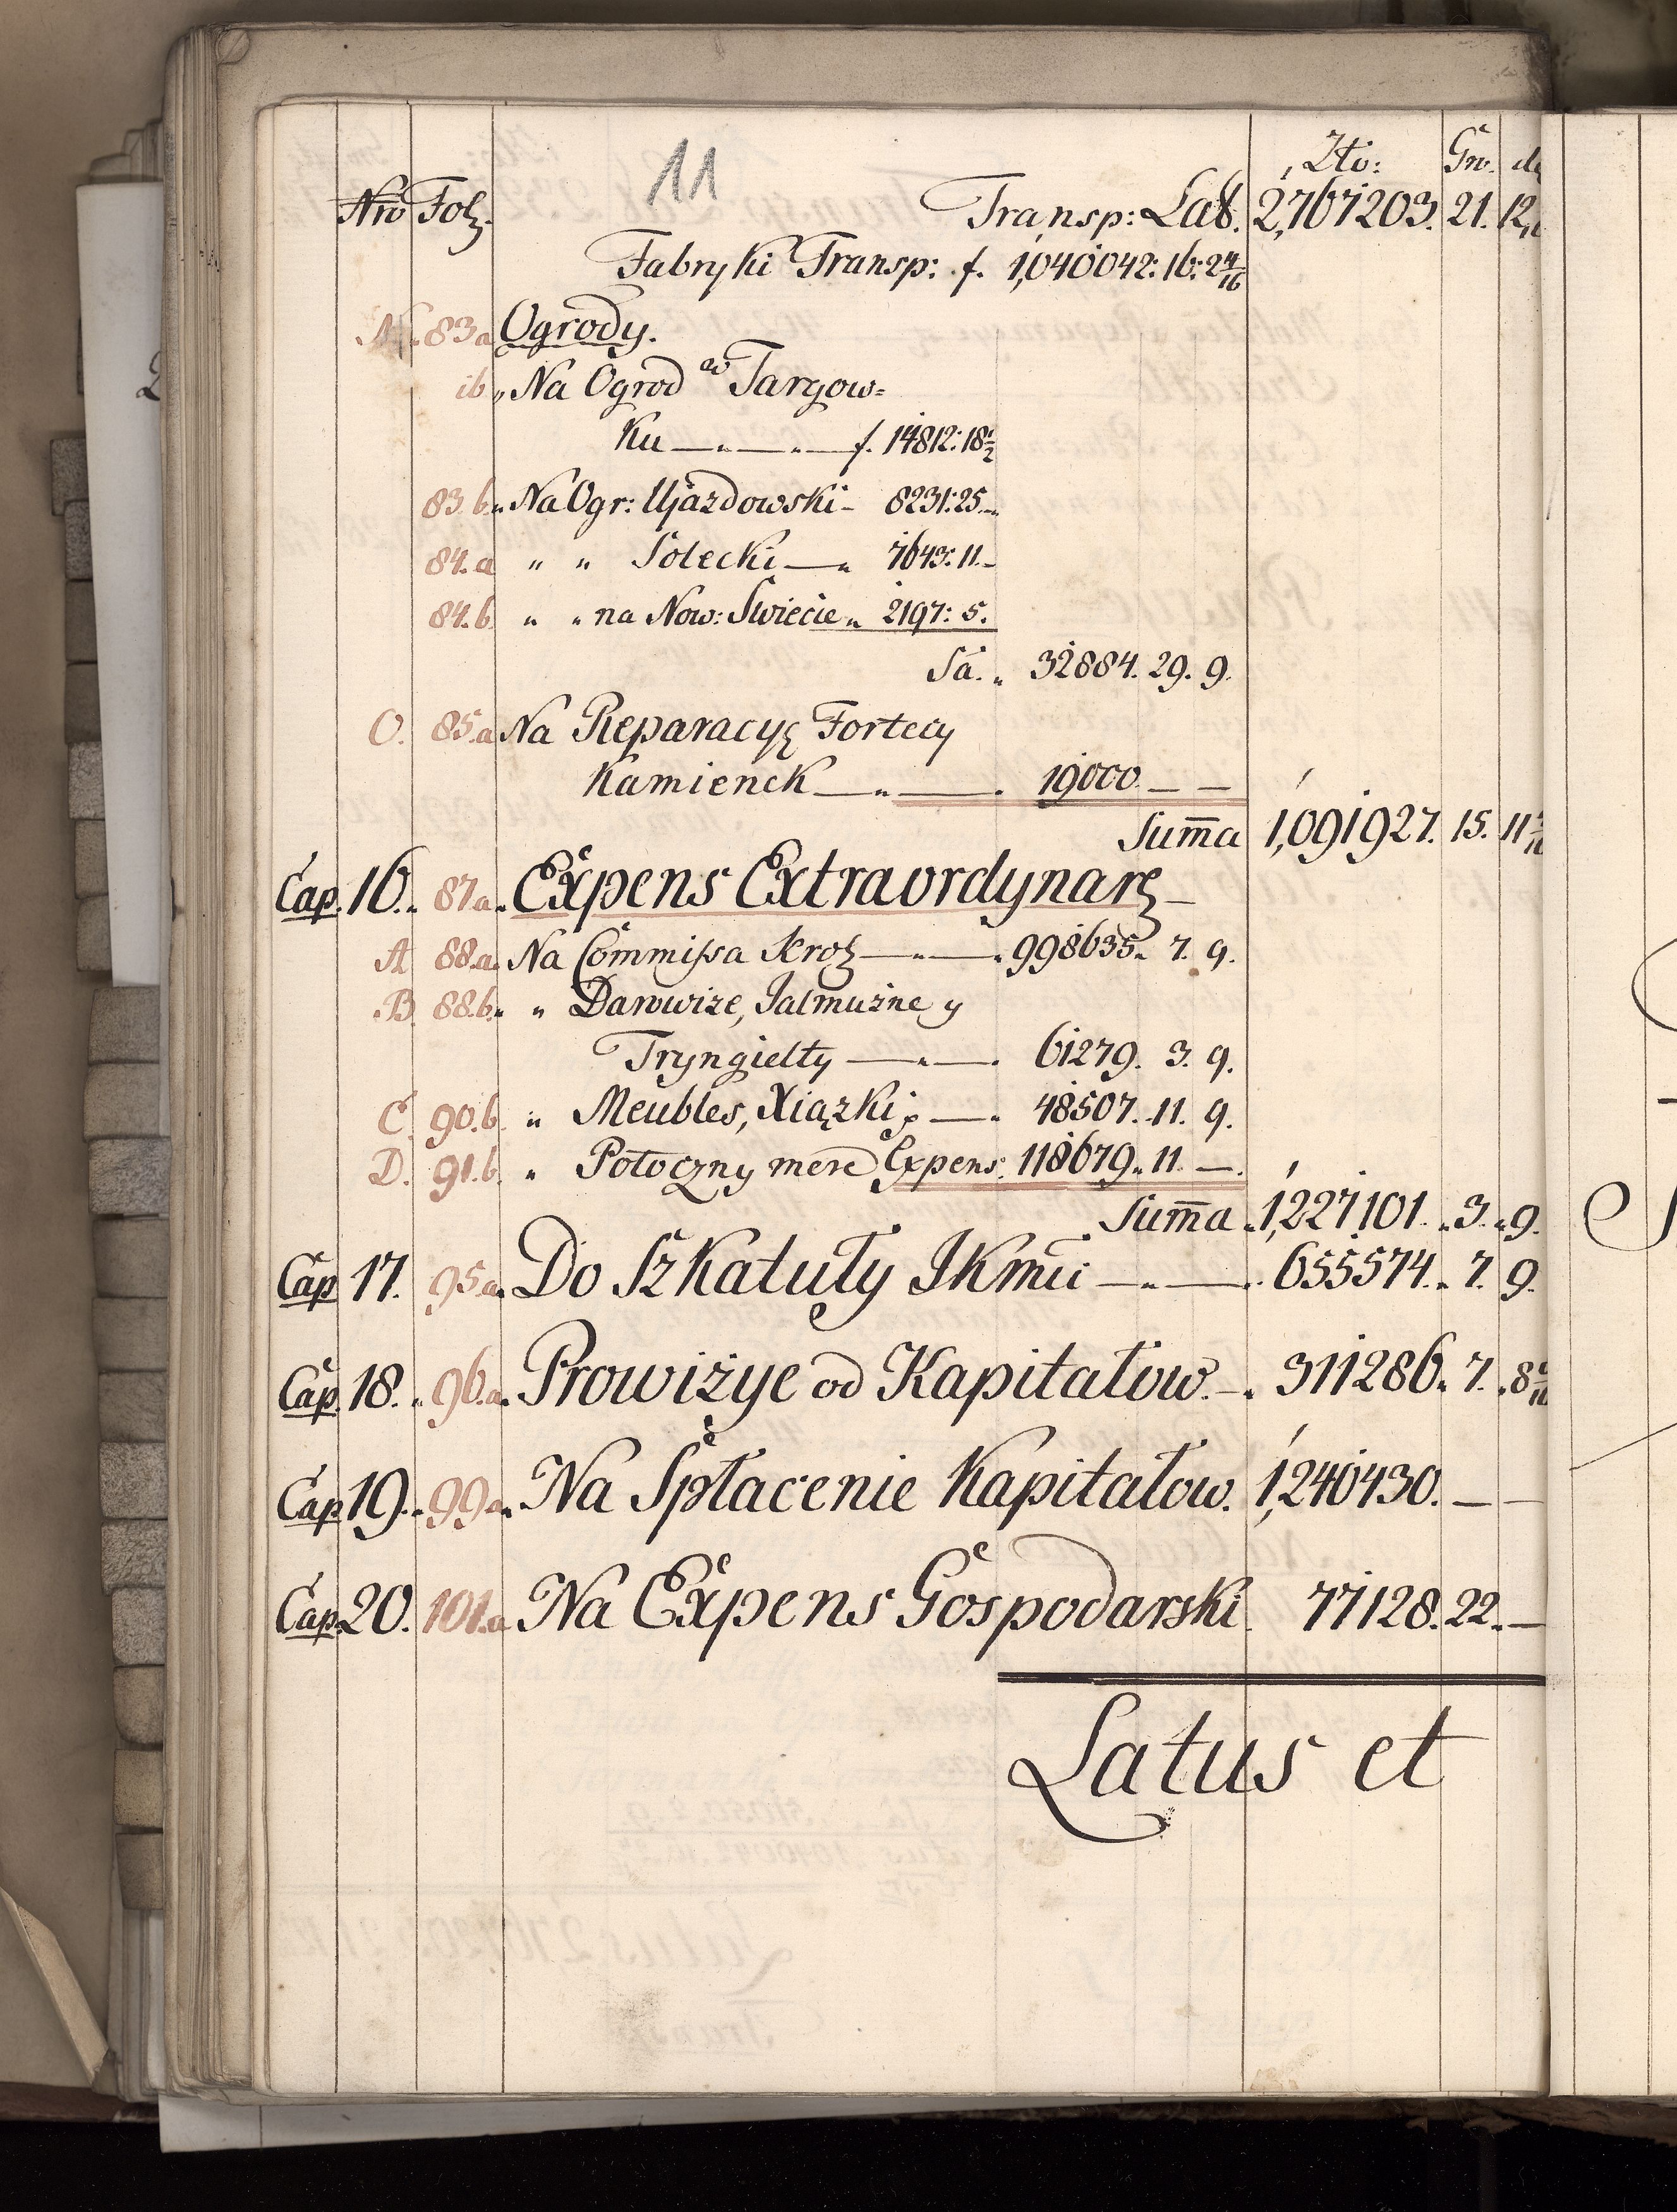 11
Zło: Gr. de
Nro Fol. Transp: Lat. 2,767203. 21. 12
Fabryki Transp: f. 1,040042: 16: 2 4/16
N. 83a Ogrody.
ib „ Na Ogrod w Targow=
Ku — „ — „ — f. 14812: 18 1/2
83. b. „ Na Ogr: Ujazdowski - 8231: 25. -
84. a „ „ Solecki — „ 7643: 11. -
84. b „ „ na Now: Swiecie „ 2197: 5.
Sa. „ 32884. 29. 9.
O. 85. a Na Reparacyę Fortecy
Kamienck — „ — . 19000. — —
Sum̄a 1,091927. 15. 11
Cap. 16. „ 87a. „ Expens Extraordynar —
A 88. a. Na Commissa Krol — „ — . 998635. 7. 9.
B. 88. b. „ „ Darowize, Jalmużne y
Tryngielty — „ — . 61279. 3. 9.
C. 90. b. „ Meubles, Xiązki — „ 48507. 11. 9.
D. 91. b. „ Potoczny mere Expens: 118679. 11. —.
Sum̄a „ 1,227101. „ 3. „ 9.
Cap 17. 95a. Do Szkatuły JKmci — „ — . 655574. „ 7. 9.
Cap. 18. „ 96. a. Prowizye od Kapitałow. — „ 311286. 7. „ 8
Cap 19. „ 99a. „ Na Spłacenie Kapitałow. 1,240430. — —
Cap. 20. 101. a Na Expens Gospodarski. 77128. 22. —
Latus et